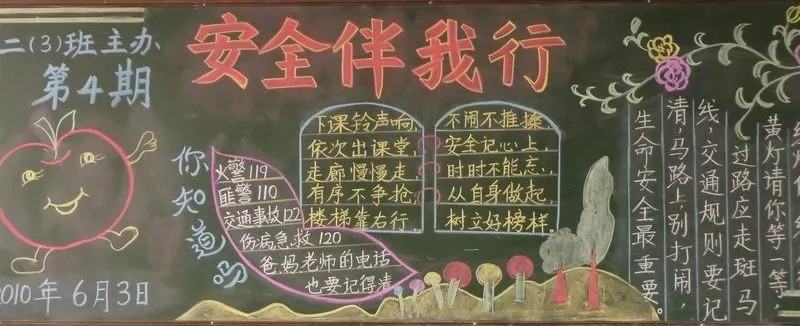 二(3)班主办
第4期
2010年6月3日
安全伴我行
你知道吗
火警119
匪警110
交通事故122
伤病急救120
爸妈老师的电话
也要记得清
下课铃声响,
依次出课堂,
走廊慢慢走,
有序不争抢,
楼梯靠右行,
不闹不推搡,
安全记心上,
时时不能忘,
从自身做起,
树立好榜样。
黄灯请你等一等,
过路应走斑马
线,交通规则要记
清,马路上别打闹,
生命安全最重要。